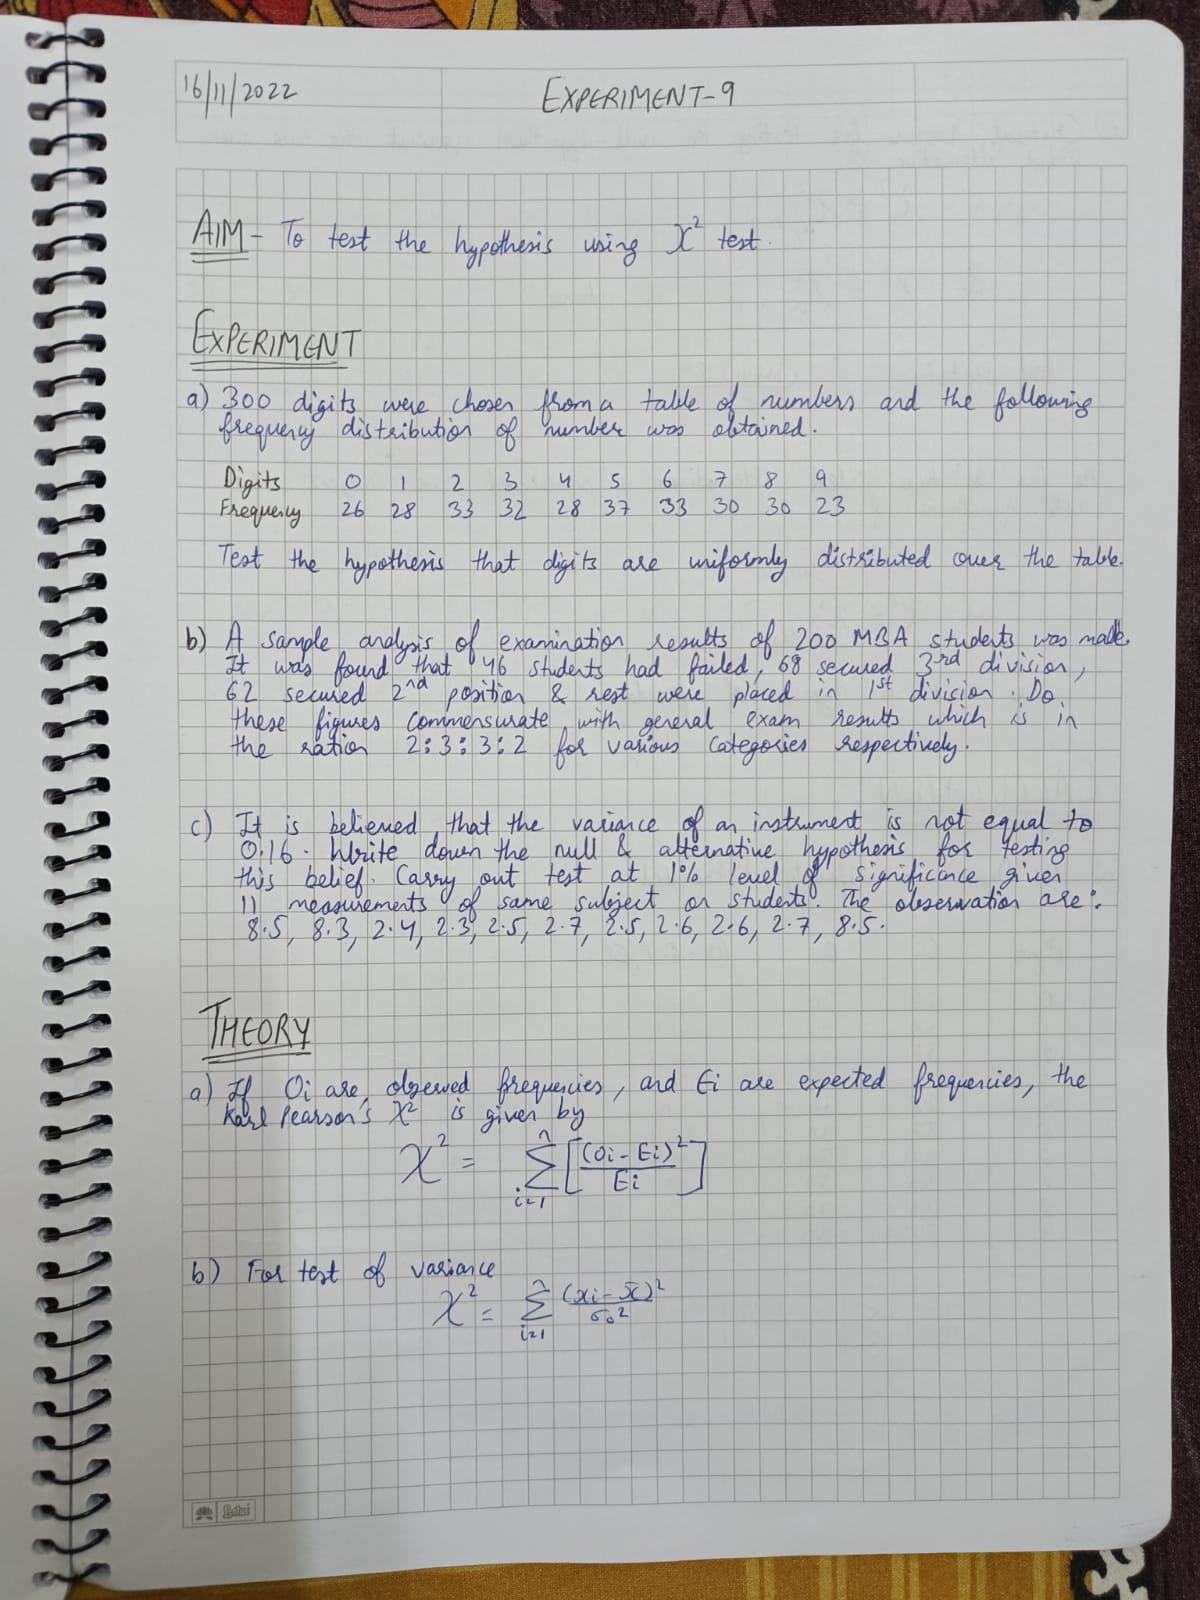 16/11/2022
EXPERIMENT-9
AIM - To test the hypothesis using χ² test.
EXPERIMENT
a) 300 digits were chosen from a table of numbers and the following
frequency distribution of number was obtained.
Digits 0 1 2 3 4 5 6 7 8 9
Frequency 26 28 33 32 28 37 33 30 30 23
Test the hypothesis that digits are uniformly distributed over the table.
b) A sample analysis of examination results of 200 MBA students was made.
It was found that 46 students had failed, 68 secured 3rd division,
62 secured 2nd position & rest were placed in 1st division. Do
these figures commensurate with general exam results which is in
the ration 2:3:3:2 for various categories respectively.
c) It is believed that the variance of an instrument is not equal to
0.16. Write down the null & alternative hypothesis for testing
this belief. Carry out test at 1% level of significance given
11 measurements of same subject or students. The observation are:
8.5, 8.3, 2.4, 2.3, 2.5, 2.7, 2.5, 2.6, 2.6, 2.7, 8.5.
THEORY
a) If Oi are observed frequencies, and Ei are expected frequencies, the
Karl Pearson's χ² is given by
χ² = n Σ i=1 [(Oi - Ei)² / Ei]
b) For test of variance
χ² = n Σ i=1 (xi - x̄)² / σ₀²